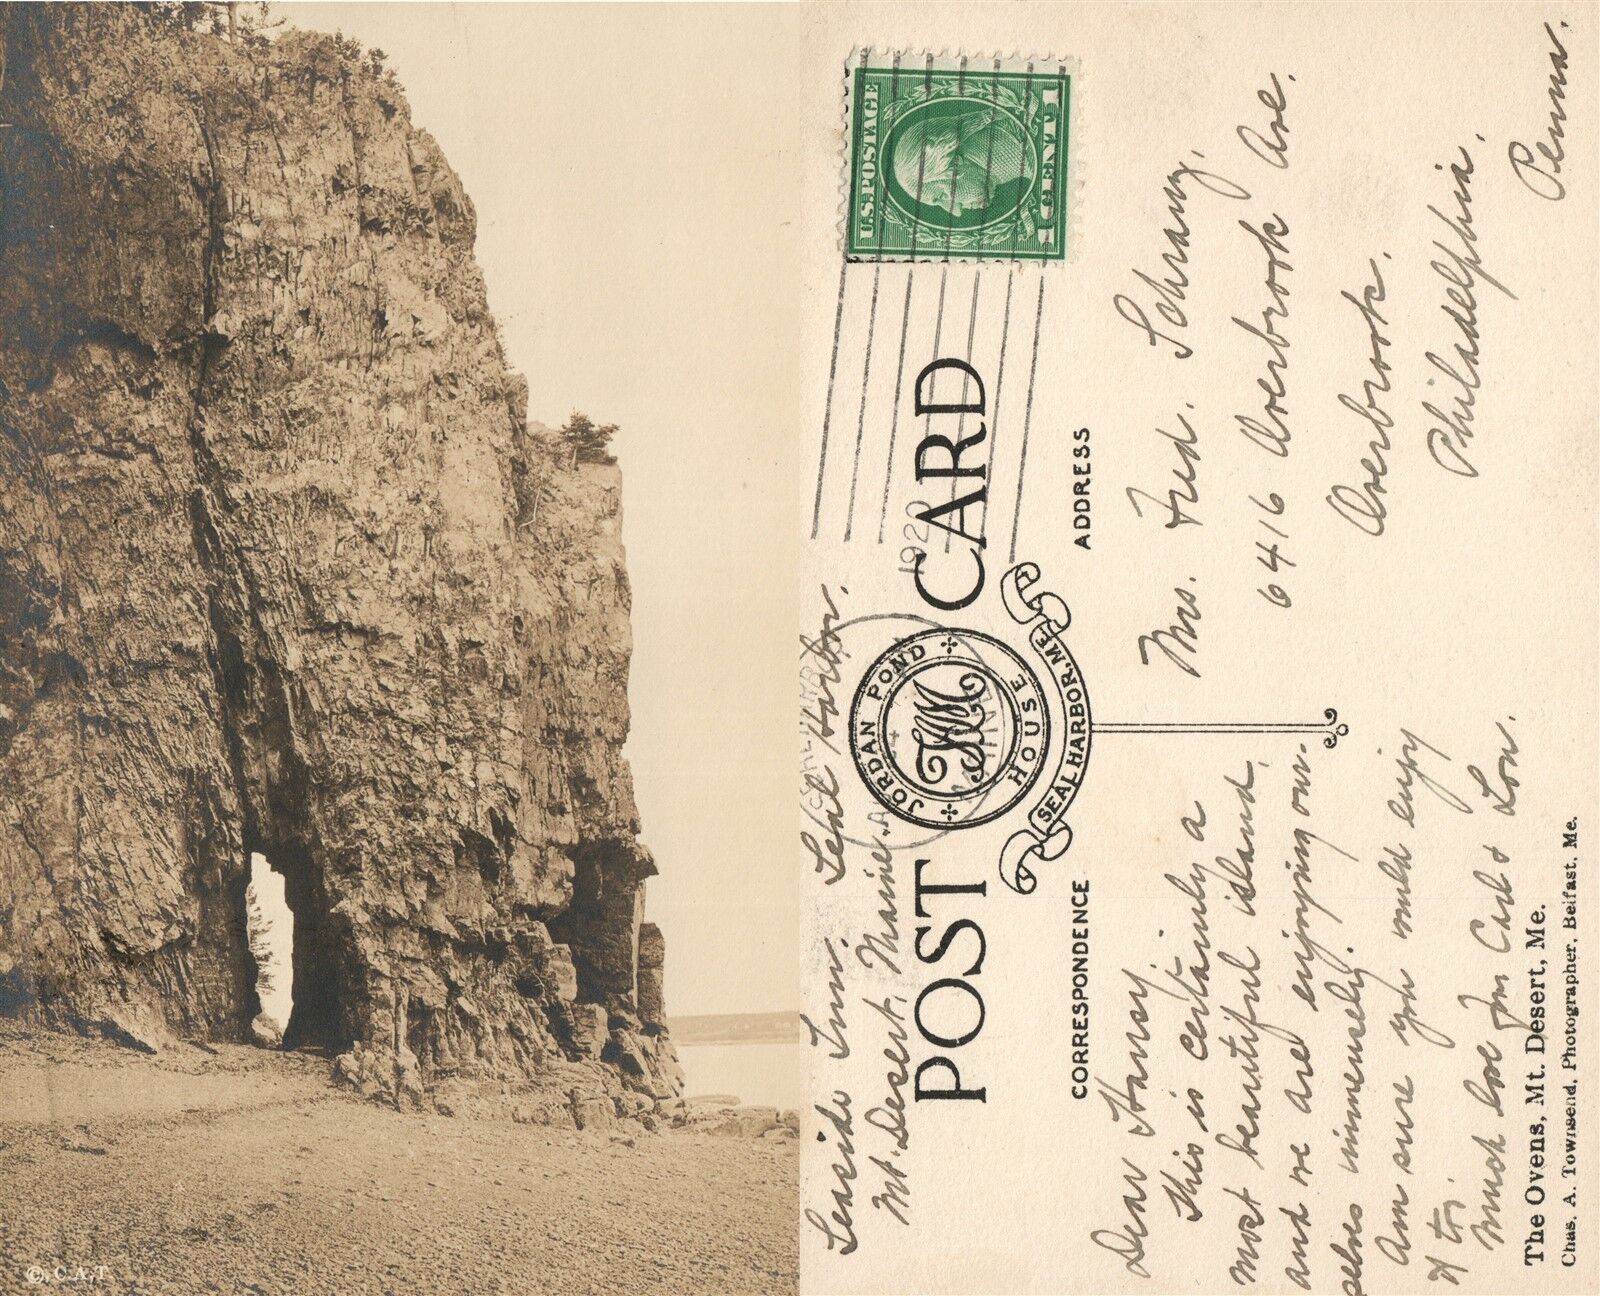 ©. C.A.T
U.S. POSTAGE
1 CENT 1
1920
MAINE
POST CARD
JORDAN POND
HOUSE
SEAL HARBOR, ME
CORRESPONDENCE
ADDRESS
Seaside Inn. Seal Harbor.
Mt. Desert, Maine.
Dear
This is certainly a
most beautiful island,
and we are enjoying our-
selves immensely.
Am sure you would enjoy
it too.
Much love from Carl & Lou.
Mrs. Fred. Schranz.
6416 Overbrook Ave.
Overbrook.
Philadelphia.
Penna.
The Ovens, Mt. Desert, Me.
Chas. A. Townsend, Photographer, Belfast, Me.